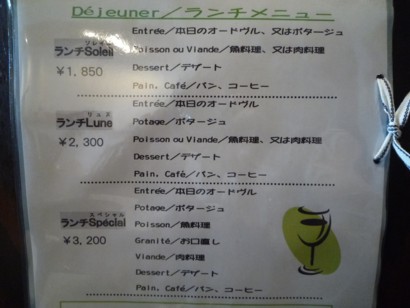 Déjeuner／ランチメニュー
Entrée／本日のオードヴル、又はポタージュ
ソレイユ
ランチSoleil
Poisson ou Viande／魚料理、又は肉料理
¥1,850
Dessert／デザート
Pain, Café／パン、コーヒー
Entrée／本日のオードヴル
リュヌ
ランチLune
Potage／ポタージュ
¥2,300
Poisson ou Viande／魚料理、又は肉料理
Dessert／デザート
Pain, Café／パン、コーヒー
Entrée／本日のオードヴル
スペシャル
ランチSpécial
Potage／ポタージュ
¥3,200
Poisson／魚料理
Granité／お口直し
Viande／肉料理
Dessert／デザート
Pain, Café／パン、コーヒー